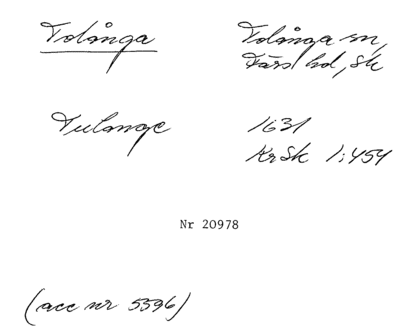 Tolånga
Tolånga sn,
Färs hd, Sk
Tulange
1631
KrSk 1:454
Nr 20978
(acc nr 5596)